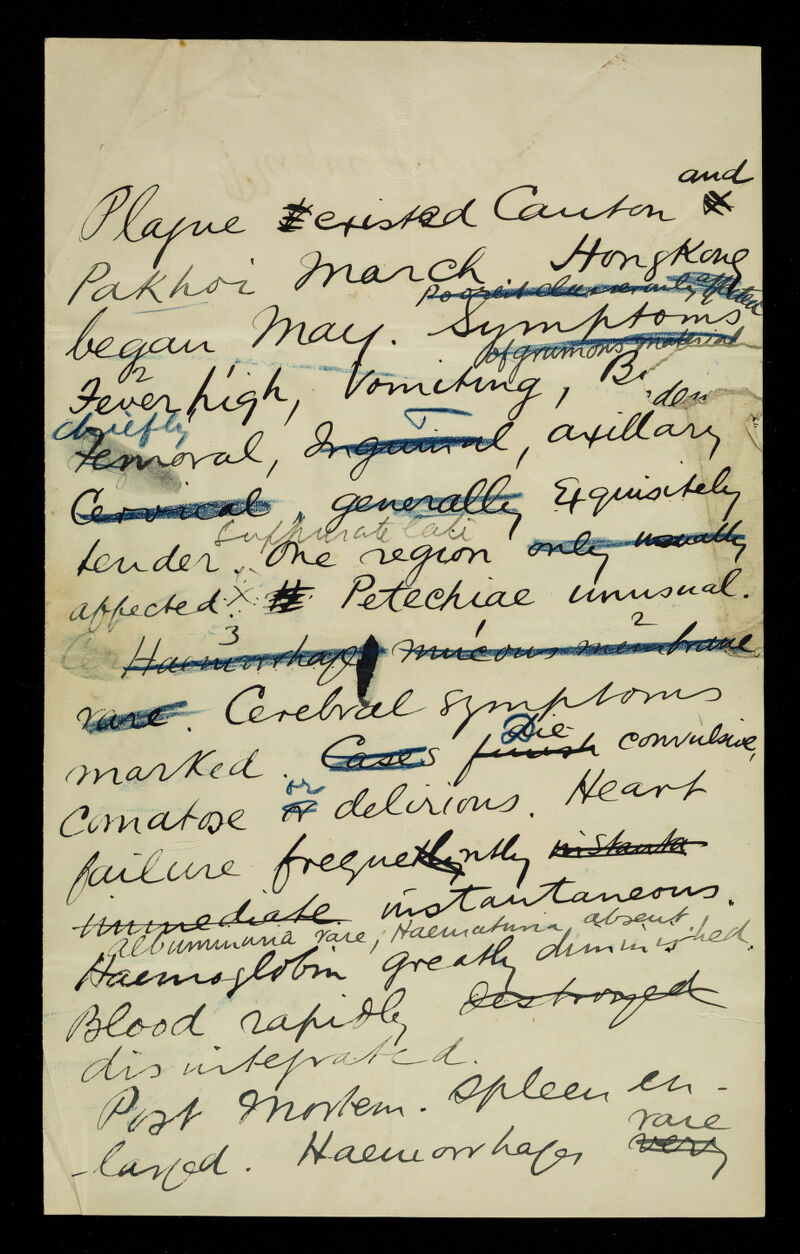 and
Plague existed Canton
Pakhoi March Hongkong
Poorest classes only affected
began May. Symptoms
of grumous material
2
Fever high, Vomiting, B
chiefly
Femoral, Inguinal, axillary
Cervical, generally Exquisitely
suppurate late
tender. One region only usually
affected. X Petechiae unusual.
3 2
Haemorrhage mucous membrane
rare. Cerebral symptoms
Die
marked. Cases finish convulsive,
or
comatose or delirious. Heart
failure frequently instanta
immediate instantaneous.
albuminuria rare, Haematuria absent.
Haemoglobin greatly diminished.
Blood rapidly destroyed
disintegrated.
Post Mortem. Spleen en-
rare
-larged. Haemorrhages very